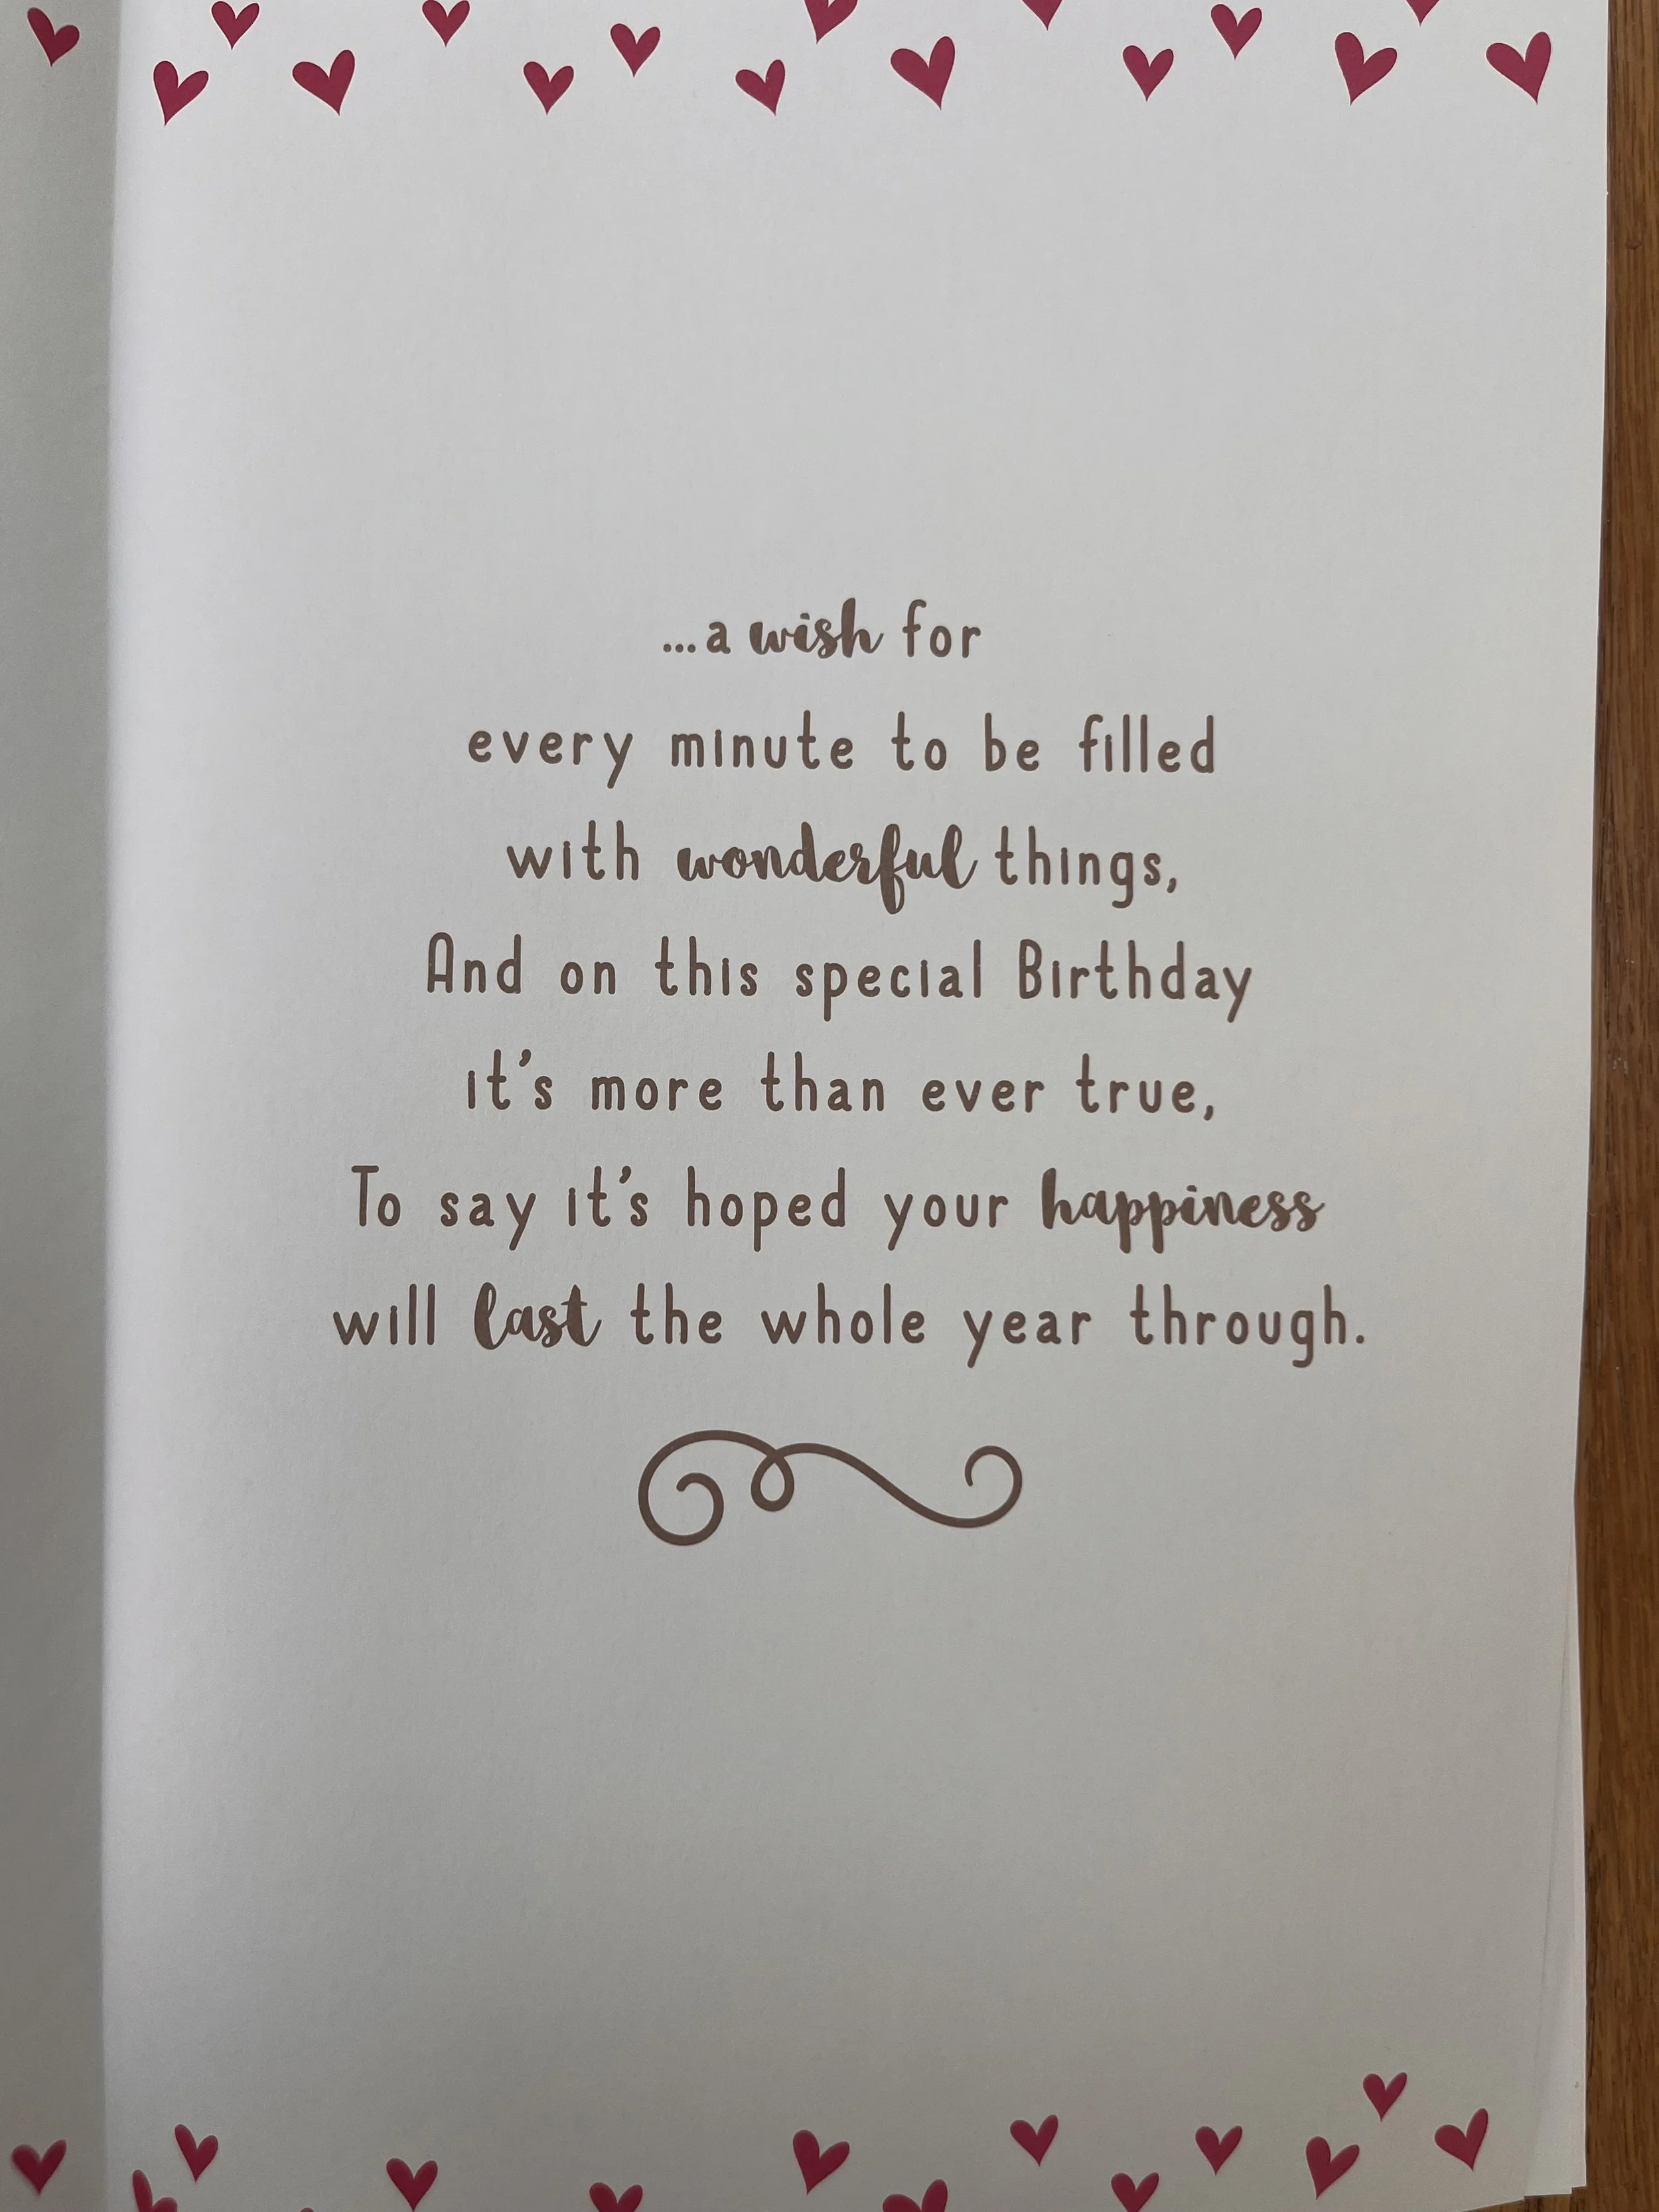 ...a wish for
every minute to be filled
with wonderful things,
And on this special Birthday
it's more than ever true,
To say it's hoped your happiness
will last the whole year through.